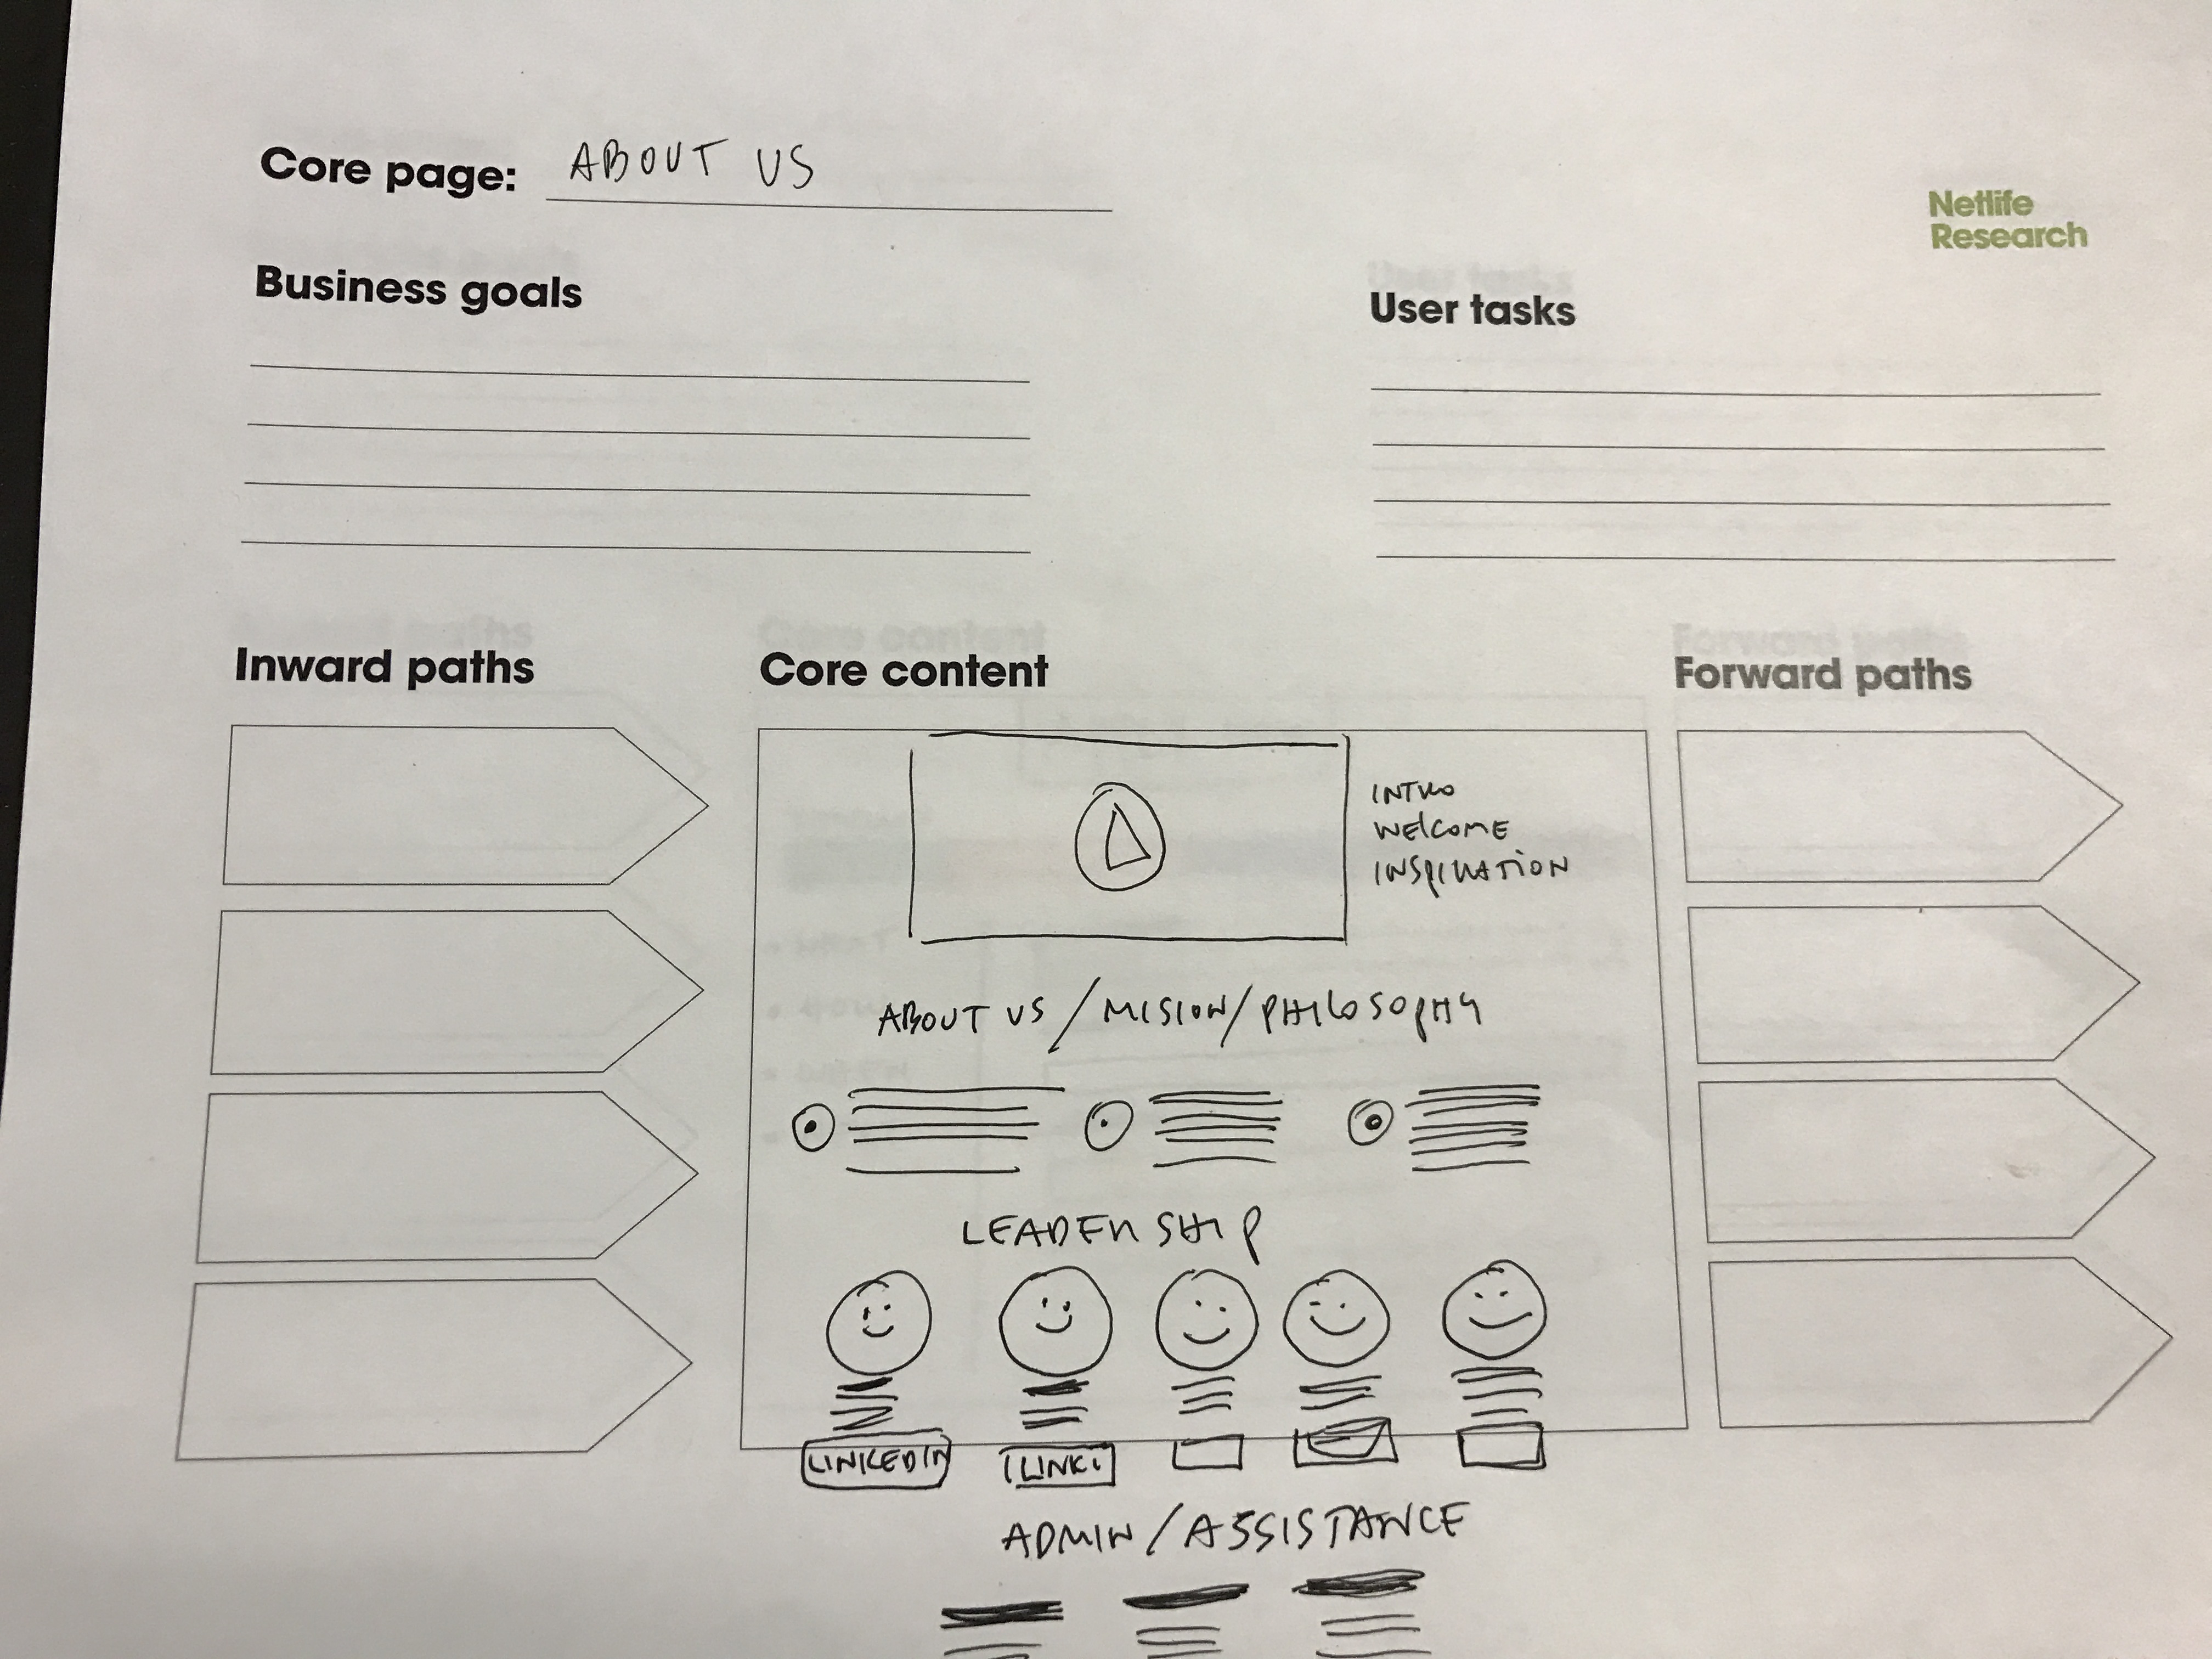 Core page: ABOUT US
Netlife
Research
Business goals
User tasks
Inward paths
Core content
Forward paths
INTRO
WELCOME
INSPIRATION
ABOUT US / MISION / PHILOSOPHY
LEADERSHIP
LINKEDIN
LINK.
ADMIN / ASSISTANCE